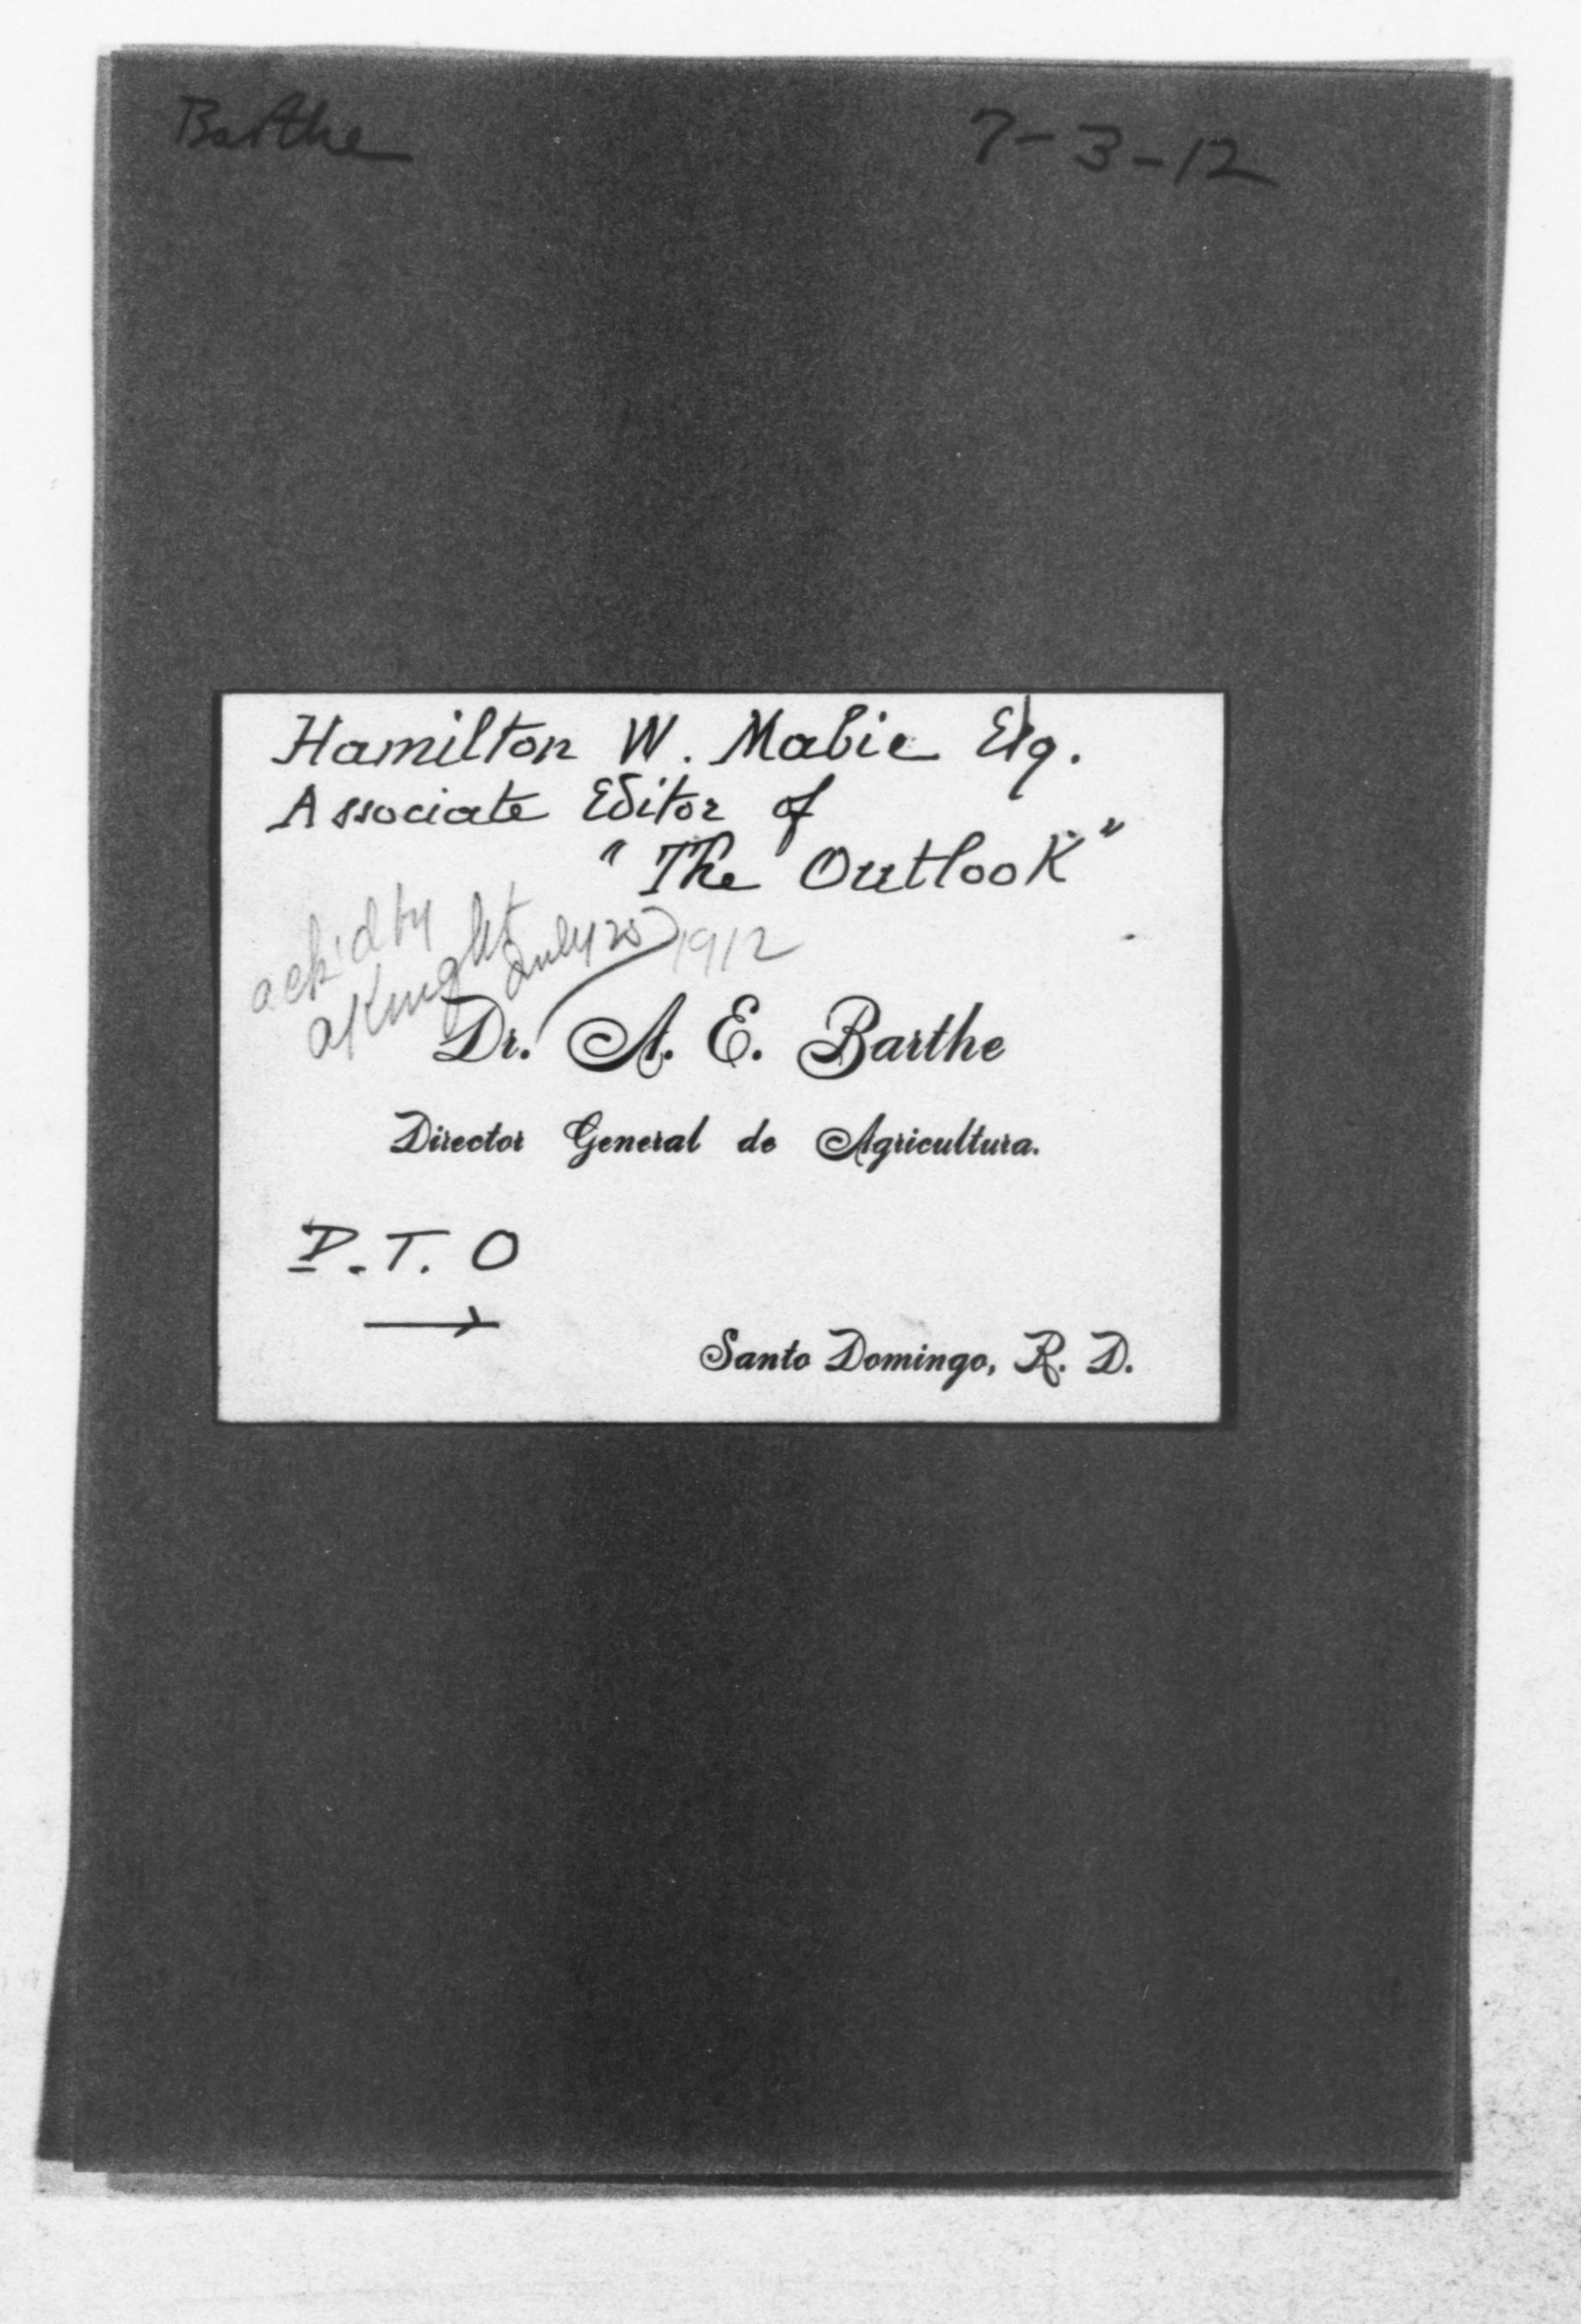 Barthe 7-3-12
Hamilton W. Mabie Esq.
Associate Editor of
"The Outlook"
ack'd by
aKnight July 25 1912
Dr. A. E. Barthe
Director General de Agricultura.
P.T.O
Santo Domingo, R. D.